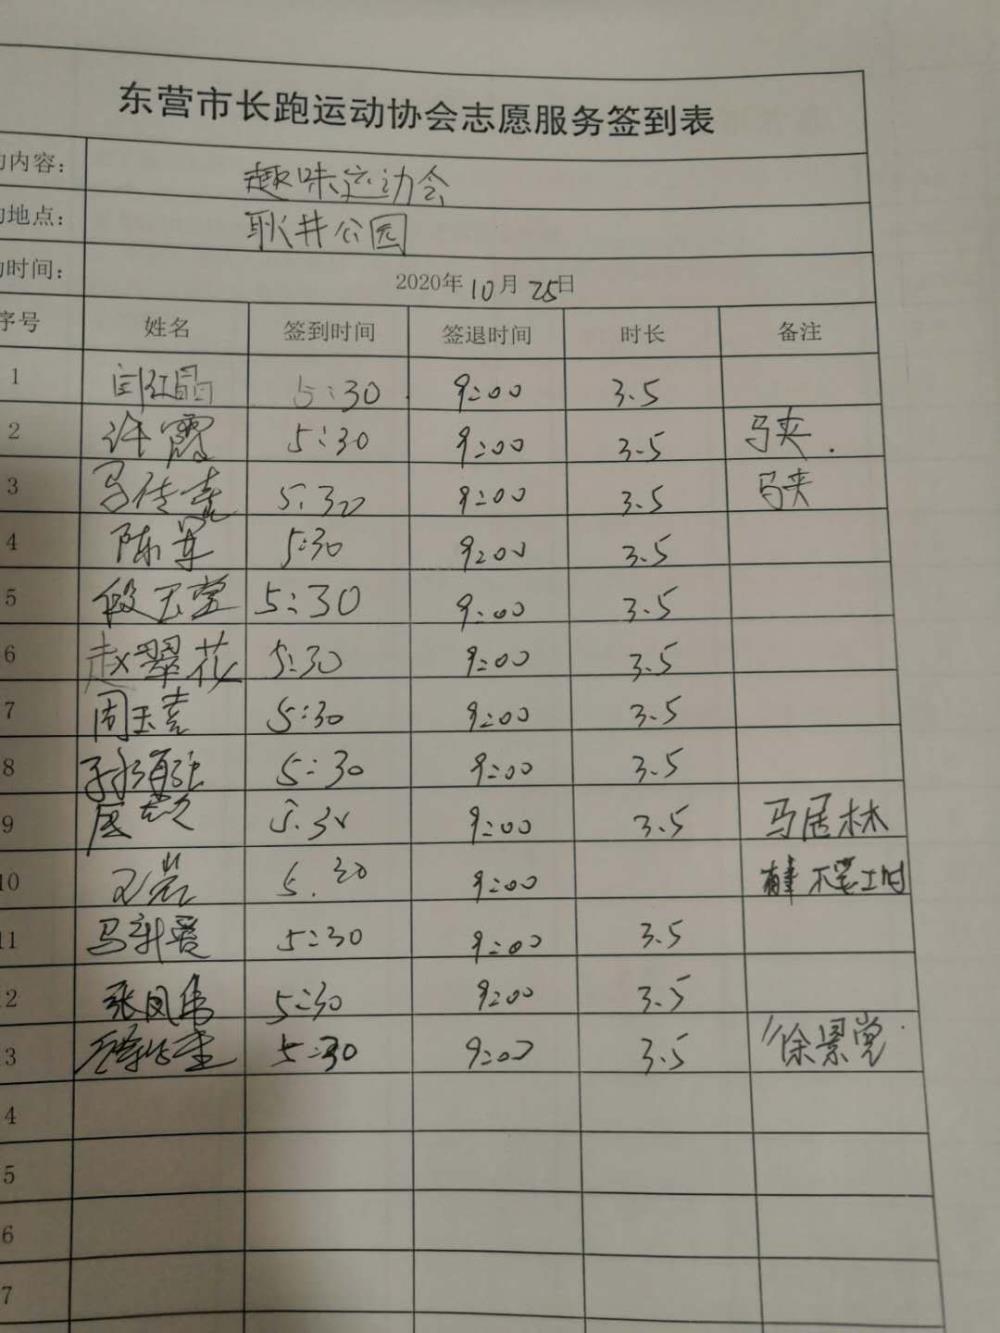 东营市长跑运动协会志愿服务签到表
内容： 趣味运动会
地点： 耿井公园
时间： 2020年10月25日
序号 姓名 签到时间 签退时间 时长 备注
1 闫红晶 5:30 9:00 3.5
2 许霞 5:30 9:00 3.5 马夹.
3 马传喜 5:30 9:00 3.5 马夹
4 陈军 5:30 9:00 3.5
5 段玉堂 5:30 9:00 3.5
6 赵翠花 5:30 9:00 3.5
7 周玉喜 5:30 9:00 3.5
8 5:30 9:00 3.5
9 5:30 9:00 3.5 马居林
10 王岩 5:30 9:00 不算工时
11 马新爱 5:30 9:00 3.5
2 张凤伟 5:30 9:00 3.5
3 5:30 9:00 3.5 徐景党
4
5
6
7